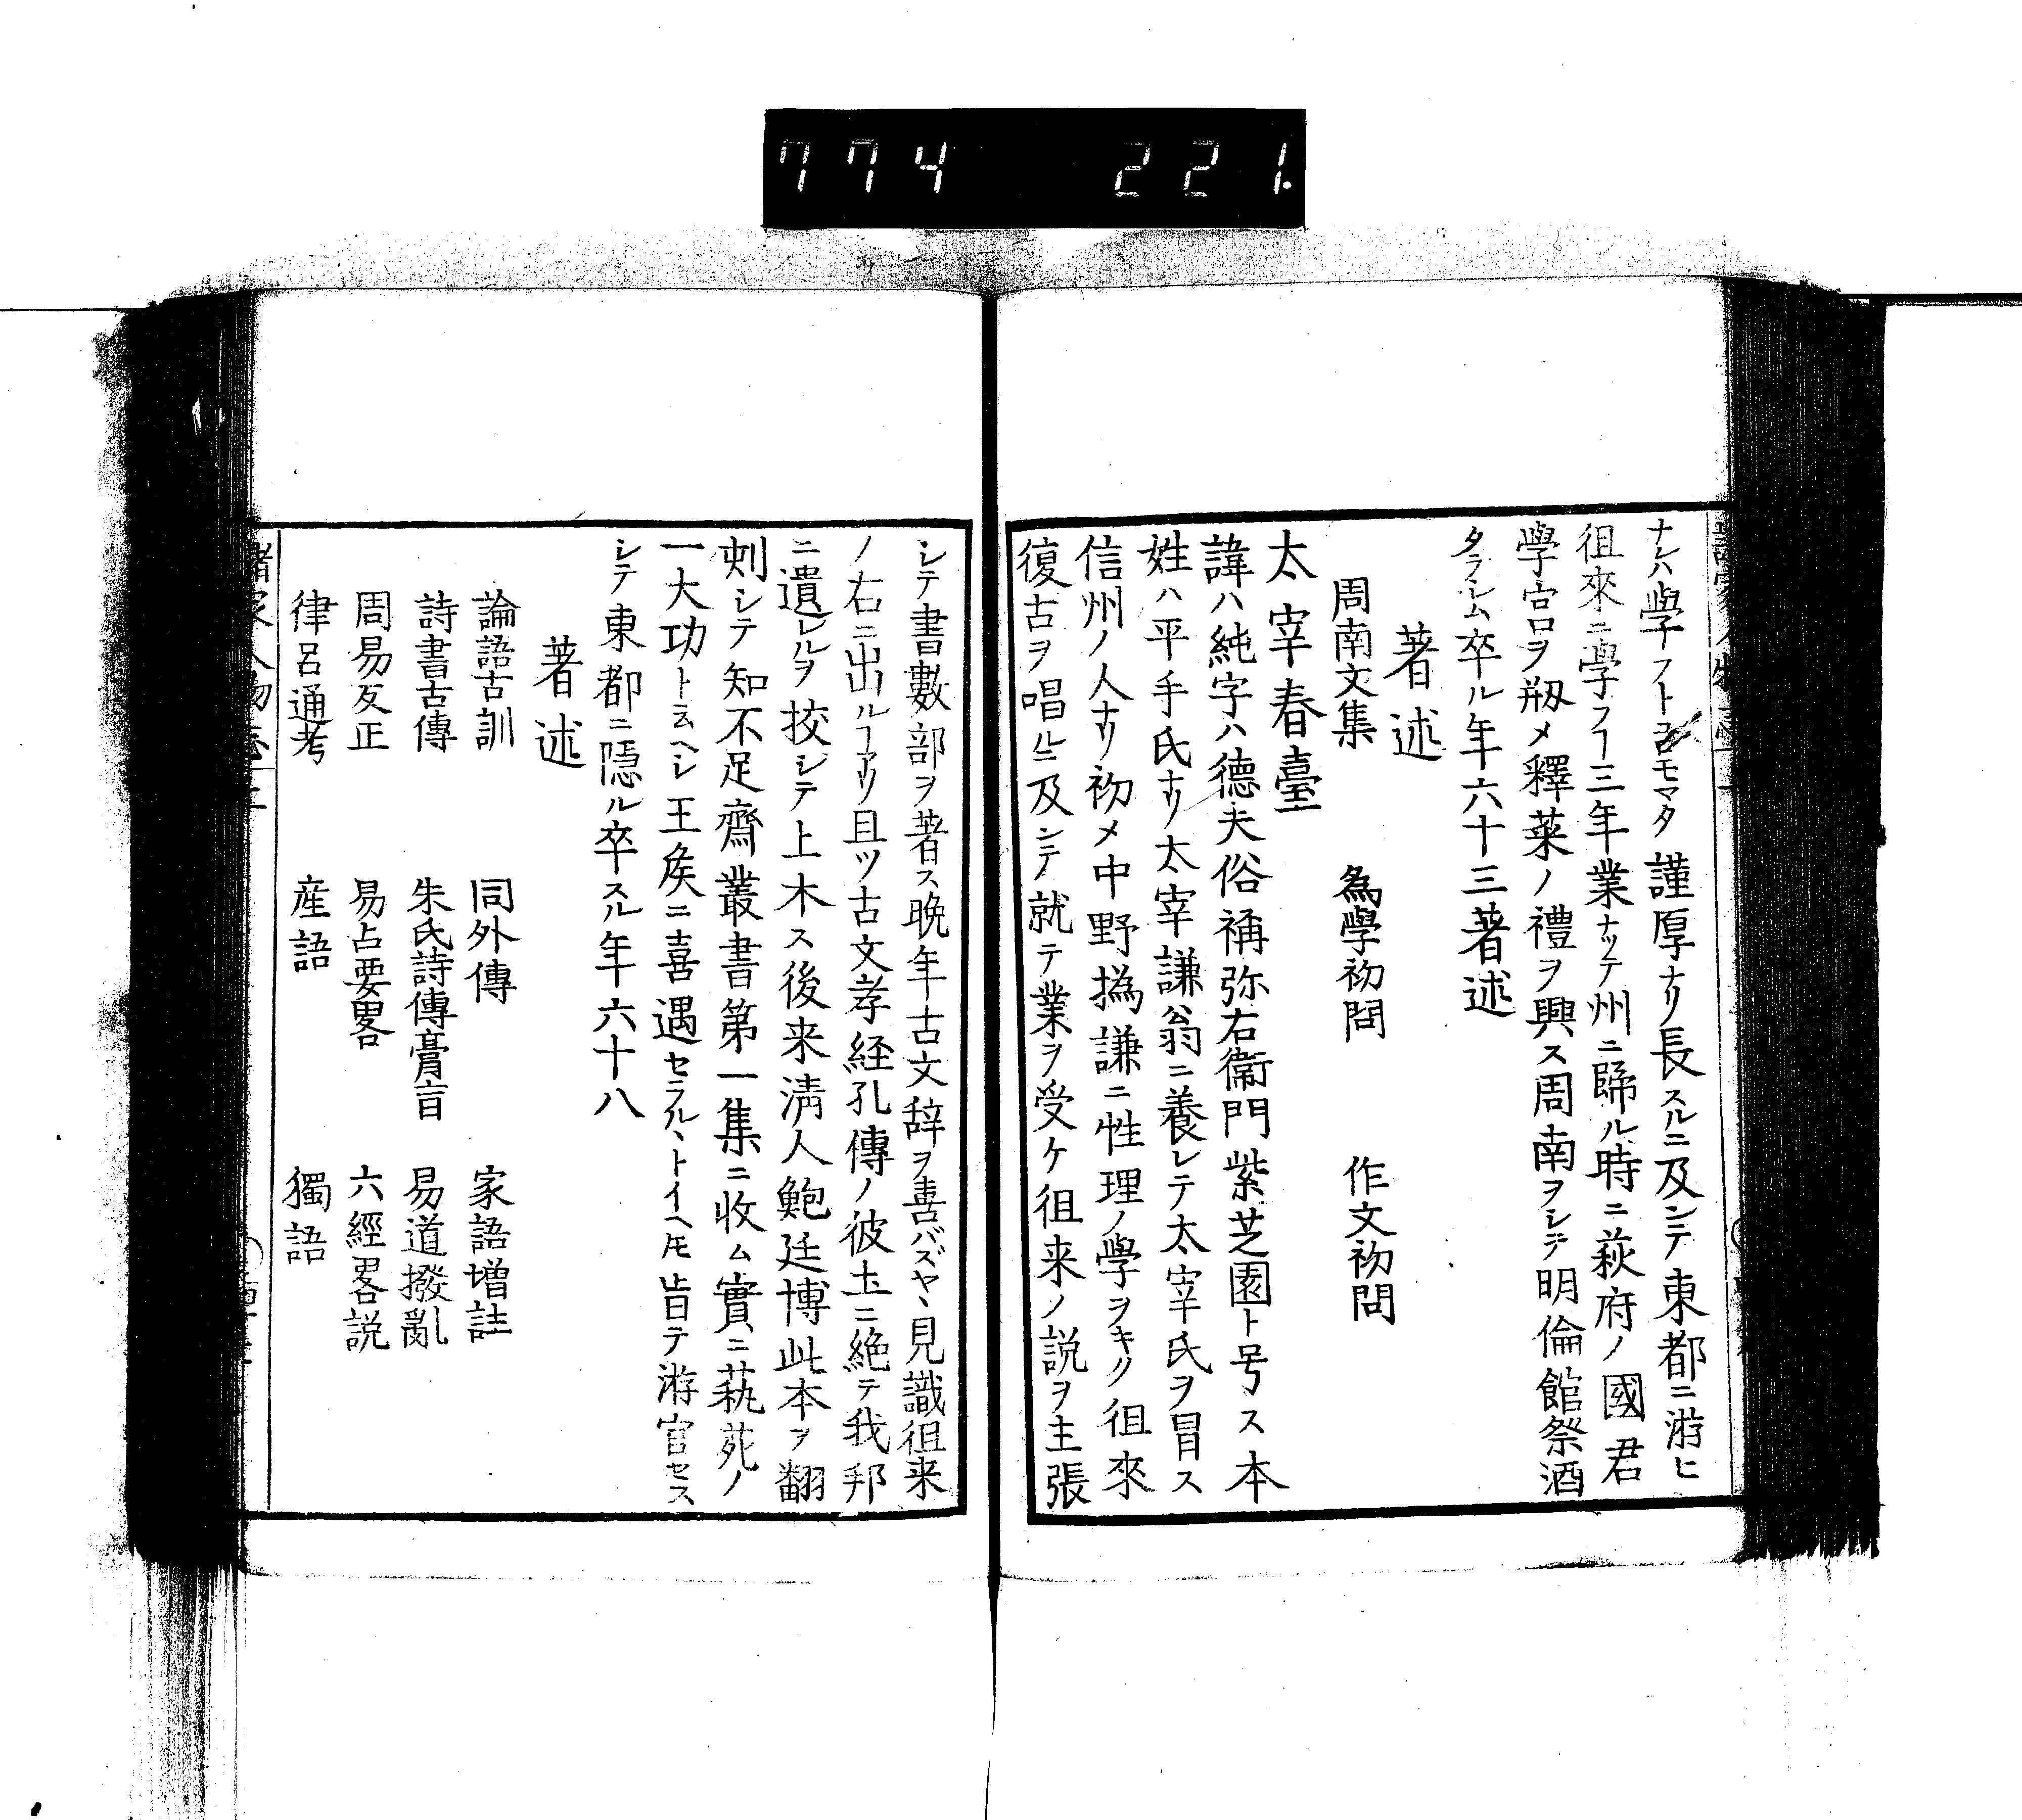 774 221.
ナレハ學フト云モマタ謹厚ナリ長スルニ及ンテ東都ニ游ヒ
徂來ニ學フヿ三年業ナツテ州ニ歸ル時ニ萩府ノ國君
學宮ヲ剏メ釋菜ノ禮ヲ興ス周南ヲシテ明倫館祭酒
タラシム卒ル年六十三著述
著述
周南文集 為學初問 作文初問
太宰春臺
諱ハ純字ハ德夫俗稱弥右衞門紫芝園ト号ス本
姓ハ平手氏ナリ太宰謙翁ニ養レテ太宰氏ヲ冒ス
信州ノ人ナリ初メ中野撝謙ニ性理ノ學ヲキク徂來
復古ヲ唱ルニ及ンテ就テ業ヲ受ケ徂来ノ説ヲ主張
シテ書數部ヲ著ス晩年古文辞ヲ喜バズヤヽ見識徂来
ノ右ニ出ルヿアリ且ツ古文孝経孔傳ノ彼土ニ絶テ我邦
ニ遺レルヲ挍シテ上木ス後来淸人鮑廷博此本ヲ翻
刻シテ知不足齋叢書第一集ニ收ム實ニ藝苑ノ
一大功ト云ヘシ王侯ニ喜遇セラルヽトイヘ𪜈皆曰テ游官セス
シテ東都ニ隱ル卒スル年六十八
著述
論語古訓 同外傳 家語增註
詩書古傳 朱氏詩傳膏肓 易道撥亂
周易反正 易占要畧 六經畧説
律呂通考 産語 獨語
諸家人物志